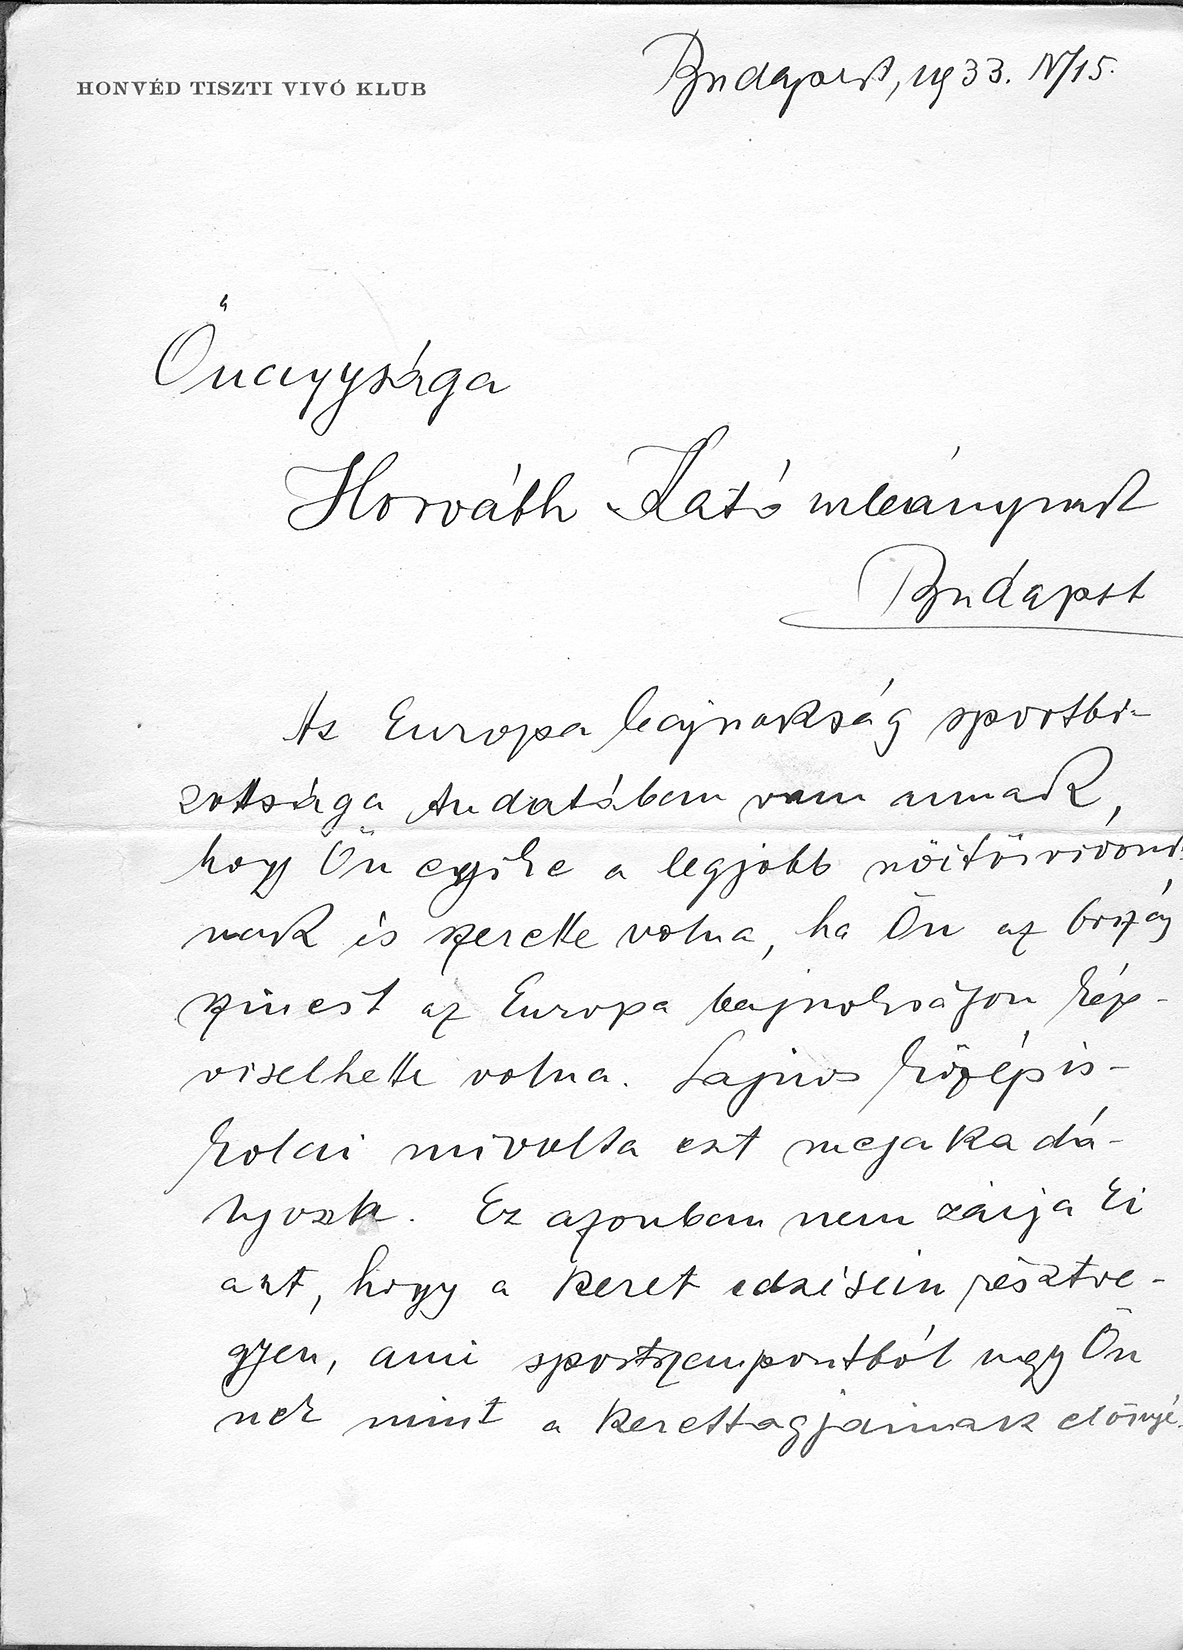 HONVÉD TISZTI VIVÓ KLUB
Budapest, 1933. IV/15.
Őnagysága
Horváth Kató úrleánynak
Budapest
Az Europa bajnokság sportbi-
zottsága tudatában van annak,
hogy Ön egyike a legjobb női tőrvivóni-
nak is szerette volna, ha Ön az ország
szineit az Europa bajnokságon kép-
viselhette volna. Sajnos középis-
kolai mivolta ezt megakadá-
lyozta. Ez azonban nem zárja ki
azt, hogy a keret edzésein résztve-
gyen, ami sportszempontból ugy Ön
nek mint a kerettagjainak előnyé-